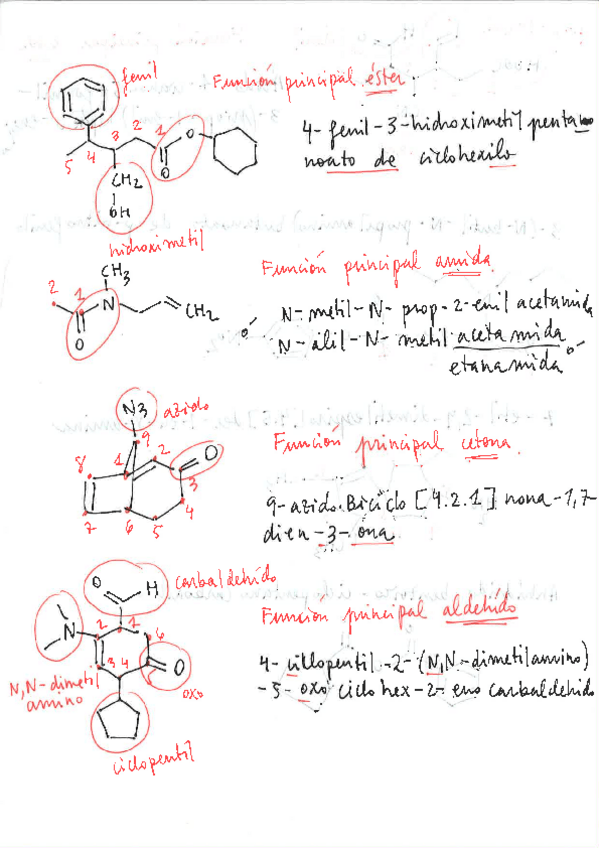 fenil
Función principal éster
4-fenil-3-hidroximetil penta
noato de ciclohexilo
5 4 3 2 1 O
O
CH2
OH
hidroximetil
Función principal amida
CH3
2 1 N CH2
O
N-metil-N-prop-2-enil acetamida
o N-alil-N-metil acetamida
etanamida
N3 azido
Función principal cetona
9
8 1 2 O
3
4
7 6 5
9-azido Biciclo [4.2.1] nona-1,7-
dien-3-ona
O H carbaldehído
Función principal aldehído
N 2 1 6
3 4 5 O
oxo
N,N-dimetil
amino
4-ciclopentil-2-(N,N-dimetilamino)
-5-oxo ciclohex-2-eno carbaldehido
ciclopentil